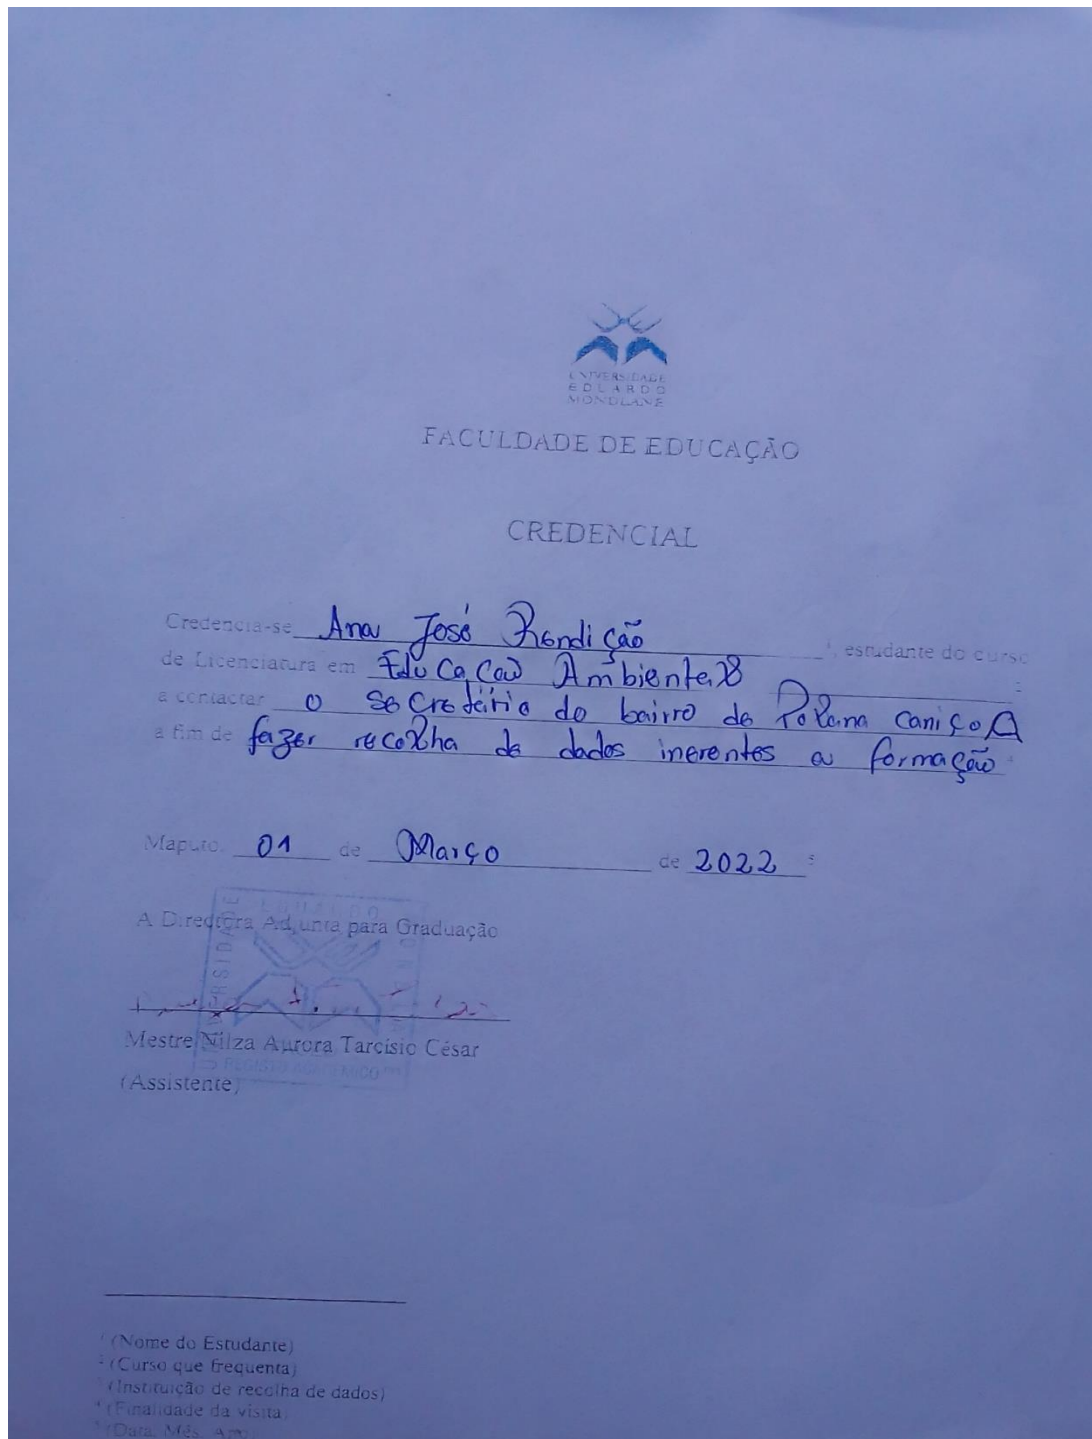 UNIVERSIDADE
EDUARDO
MONDLANE
FACULDADE DE EDUCAÇÃO
CREDENCIAL
Credencia-se Ana José Rendição ¹, estudante do curso
de Licenciatura em Educação Ambiental ²
a contactar o secretário do bairro de Polana caniço A
a fim de fazer recolha de dados inerentes a formação ⁴
Maputo, 01 de Março de 2022 ⁵
A Directora Adjunta para Graduação
Mestre Nilza Aurora Tarcísio César
(Assistente)
¹ (Nome do Estudante)
² (Curso que frequenta)
³ (Instituição de recolha de dados)
⁴ (Finalidade da visita)
⁵ (Data, Mês, Ano)